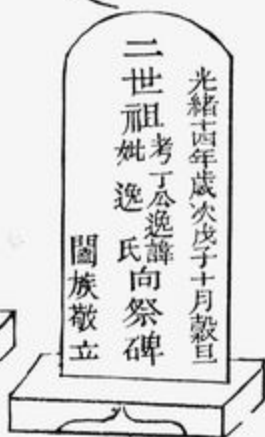 光緒十四年歲次戊子十月穀旦
二世祖考丁公逸諱妣逸氏向祭碑
闔族敬立